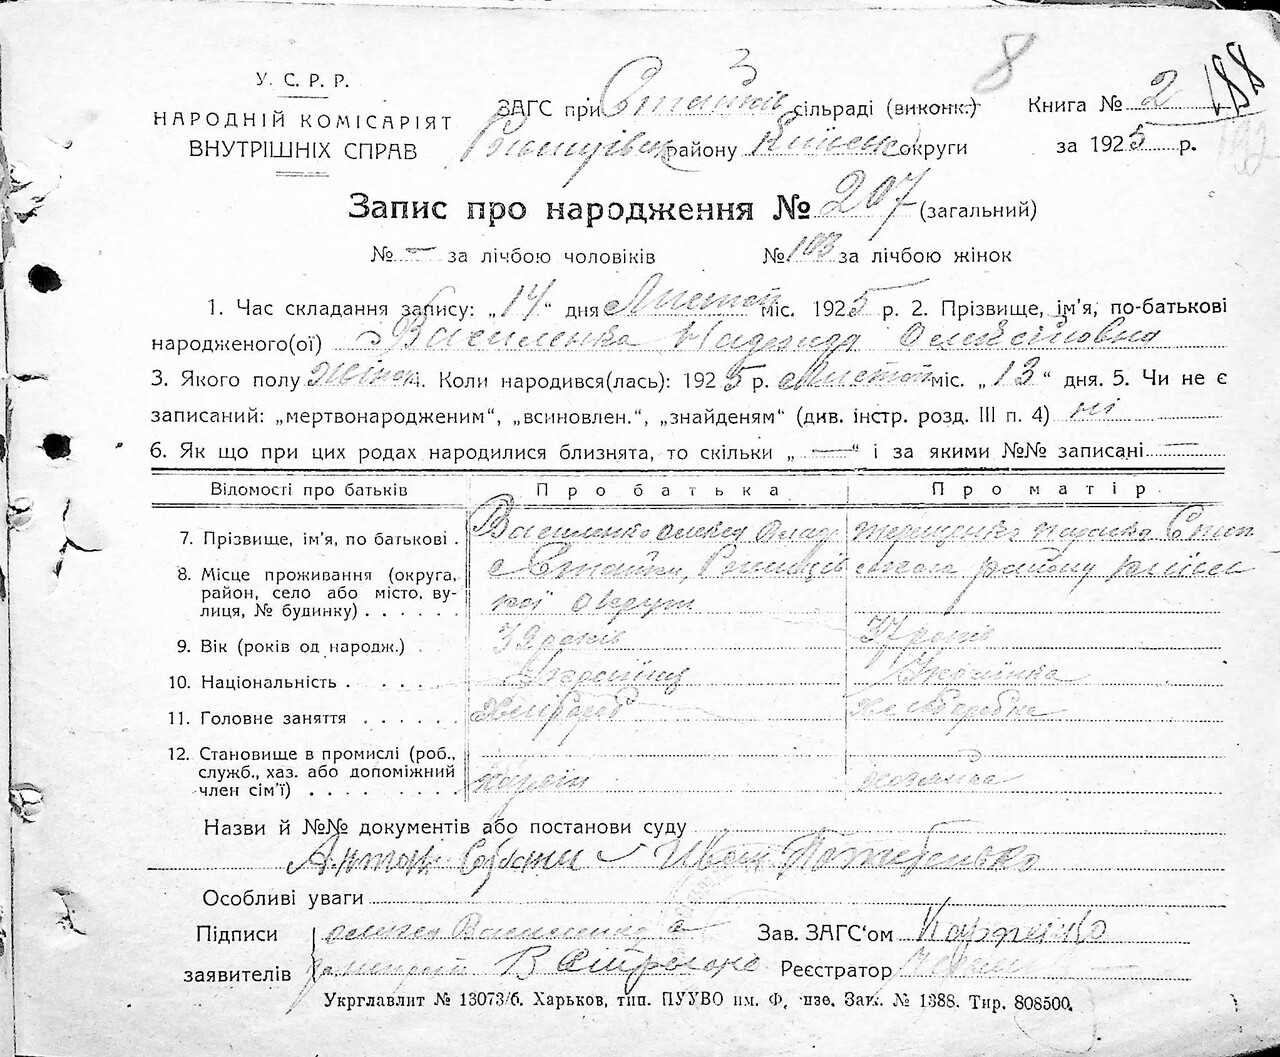 8
У. С. Р. Р.
НАРОДНІЙ КОМІСАРІЯТ
ВНУТРІШНІХ СПРАВ
ЗАГС при Стайків сільраді (виконк.)
району Київськ округи
Книга № 2
188
192
за 1925 р.
Запис про народження № 207 (загальний)
№ — за лічбою чоловіків № 103 за лічбою жінок
1. Час складання запису: „14“ дня Листоп міс. 1925 р. 2. Прізвище, ім'я, по-батькові
народженого(ої) Василенко Надежда Олексіївна
3. Якого полу Жіноч. 4. Коли народився(лась): 1925 р. Листоп міс. „13“ дня. 5. Чи не є
записаний: „мертвонародженим“, „всиновлен.“, „знайденям“ (див. інстр. розд. III п. 4) ні
6. Як що при цих родах народилися близнята, то скільки „—“ і за якими №№ записані —
Відомості про батьків Про батька Про матір
7. Прізвище, ім'я, по батькові . Василенко Олексій Влад
8. Місце проживання (округа, район, село або місто, вулиця, № будинку) . . . . . . с Стайки, району
кої округи
9. Вік (років од народж.) . років 37 років
10. Національність . . . . . Українець Українка
11. Головне заняття . . . . . . Хлібороб Хлеборобка
12. Становище в промислі (роб., служб., хаз. або допоміжний член сім'ї) . . . . . . . . хазяін хозяйка
Назви й №№ документів або постанови суду
Иван
Особливі уваги
Підписи Василенко Зав. ЗАГС'ом
заявителів Реєстратор
Укрглавлит № 13073/б. Харьков, тип. ПУУВО им. Ф. нзе. Зак. № 1388. Тир. 808500.